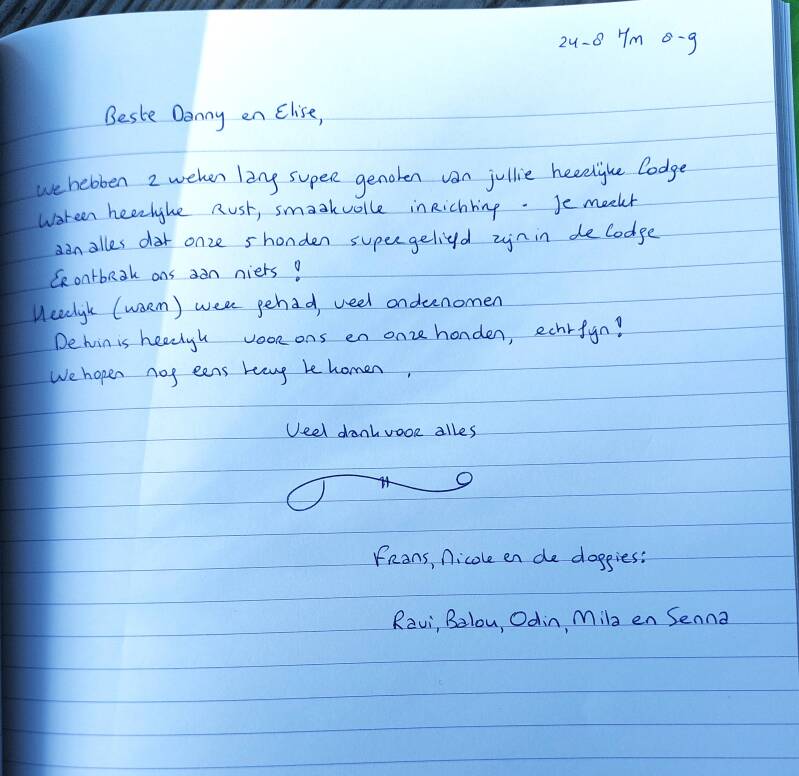 24-8 t/m 8-9
Beste Danny en Elise,
We hebben 2 weken lang super genoten van jullie heerlijke Lodge
Wat een heerlijke Rust, smaakvolle inrichting. Je merkt
aan alles dat onze 5 honden super geliefd zijn in de Lodge
Er ontbrak ons aan niets!
Heerlijk (warm) weer gehad, veel ondernomen
De tuin is heerlijk voor ons en onze honden, echt fijn!
We hopen nog eens terug te komen,
Veel dank voor alles
Frans, Nicole en de doggies:
Ravi, Balou, Odin, Mila en Senna